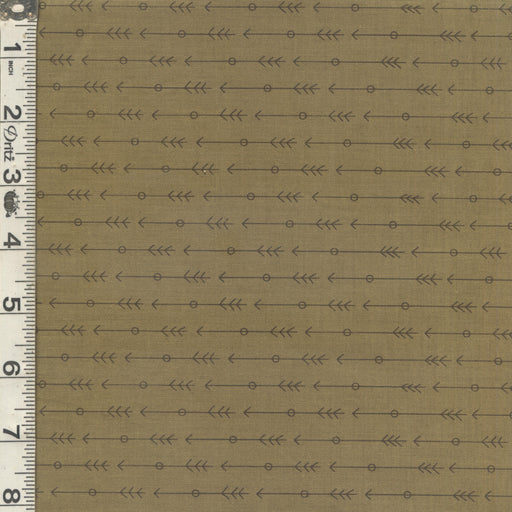 1
INCH
2
Dritz
3
4
5
6
7
8